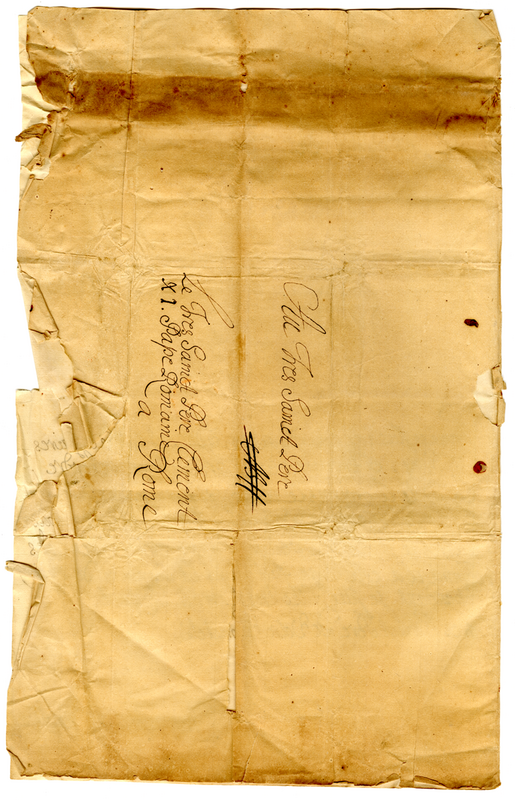 Au Tres Sainct Pere
Le Tres Sainct Pere Clement
XI. Pape Romain
a Rome